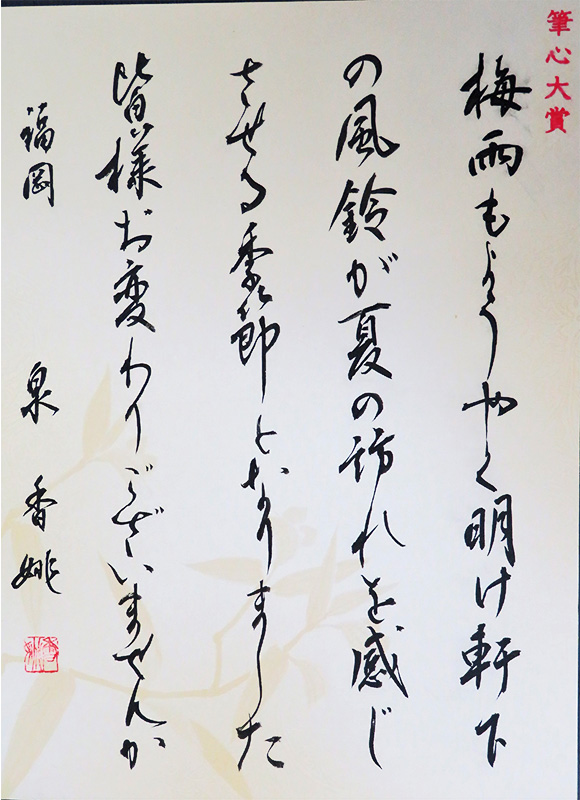 筆心大賞
梅雨もようやく明け軒下
の風鈴が夏の訪れを感じ
させる季節となりました
皆様お変わりございませんか
福岡 泉香姚